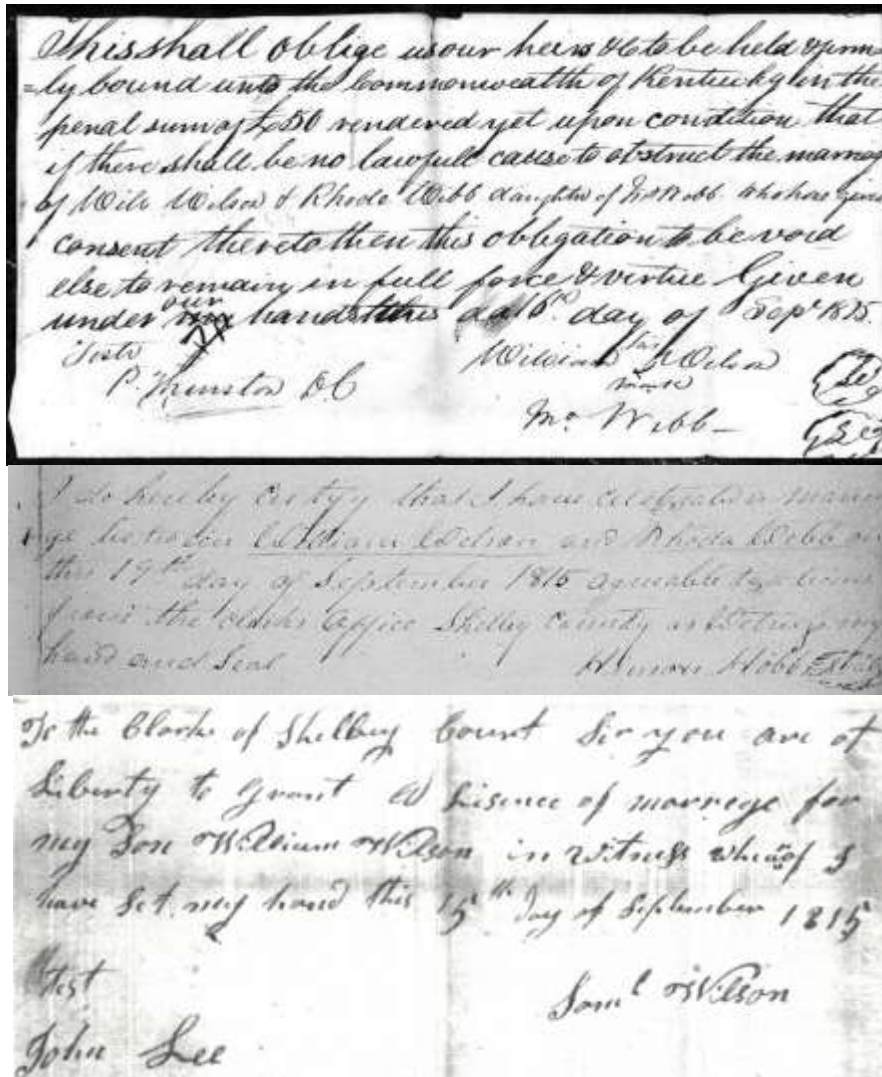 This shall oblige us our heirs &c to be held & firm
=ly bound unto the Commonwealth of Kentucky in the
penal sum of £50 rendered yet upon condition that
if there shall be no lawfull cause to obstruct the marriag
of Will Wilson & Rhoda Webb daughter of Webb who has given
consent thereto then this obligation to be void
else to remain in full force & virtue Given
under our hands this day of Sept 1815.
Teste William his Wilson
mark
P. Thurston D.C
Mo Webb
I do hereby certify that I have celebrated a marri
age between William Wilson and Rhoda Webb on
this 19th day of September 1815 agreeable to a licens
from the clerks office Shelby County as Witness my
hand and Seal Hinson Hobbs
To the Clarke of Shelbey Count Sir you are at
Liberty to grant a Lisence of marrege for
my Son William Wilson in witness whereof I
have set my hand this 15th Day of September 1815
test
Saml Wilson
John Lee